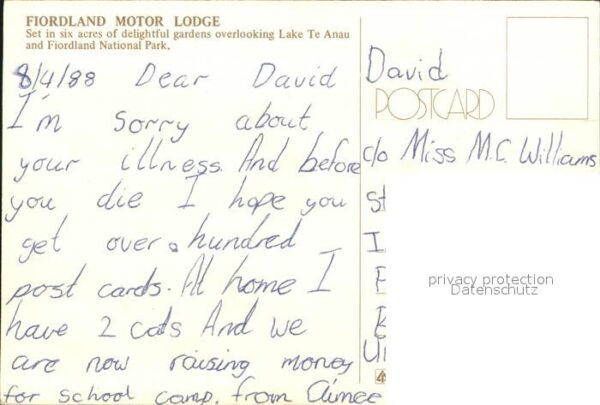 FIORDLAND MOTOR LODGE
Set in six acres of delightful gardens overlooking Lake Te Anau
and Fiordland National Park.
8/4/88 Dear David
I'm sorry about
your illness. And before
you die I hope you
get over a hundred
post cards. At home I
have 2 cats And we
are now raising money
for school camp. from Aimee
David
POSTCARD
c/o Miss M.C. Williams
privacy protection
Datenschutz